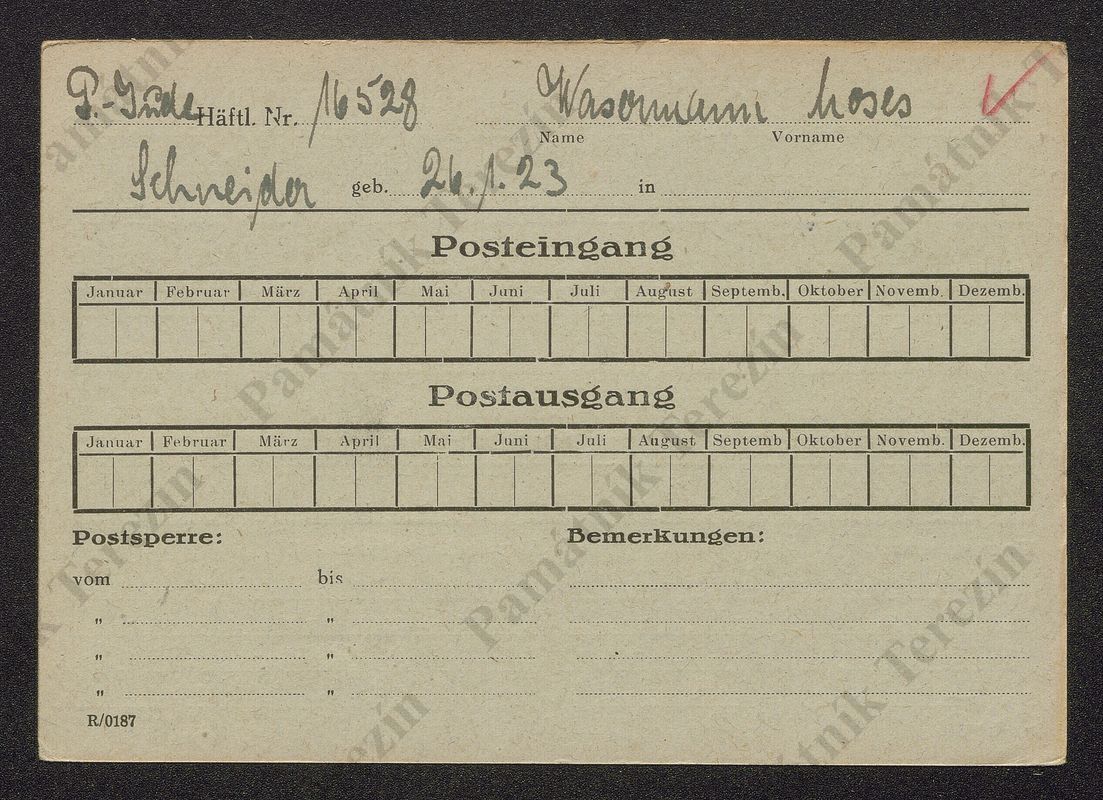 P.-Jude Häftl. Nr. 16528 Wasermann Moses
Name Vorname
Schneider geb. 26.1.23 in
Posteingang
Januar Februar März April Mai Juni Juli August Septemb. Oktober Novemb. Dezemb.
Postausgang
Januar Februar März April Mai Juni Juli August Septemb Oktober Novemb. Dezemb.
Postsperre: Bemerkungen:
vom bis
" "
" "
" "
R/0187
Památník Terezín